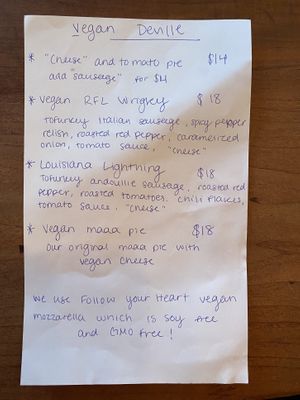 Vegan Deville
* "Cheese" and tomato pie $14
add "sausage" for $4
* Vegan RFL Wrigley $18
Tofurkey Italian sausage, spicy pepper
relish, roasted red pepper, caramelized
onion, tomato sauce, "cheese"
* Louisiana Lightning $18
Tofurkey andouille sausage, roasted red
pepper, roasted tomatoes, chili flakes,
tomato sauce, "cheese"
* Vegan maaa pie $18
Our original maaa pie with
vegan cheese
We use Follow your Heart vegan
mozzarella which is soy free
and GMO free!